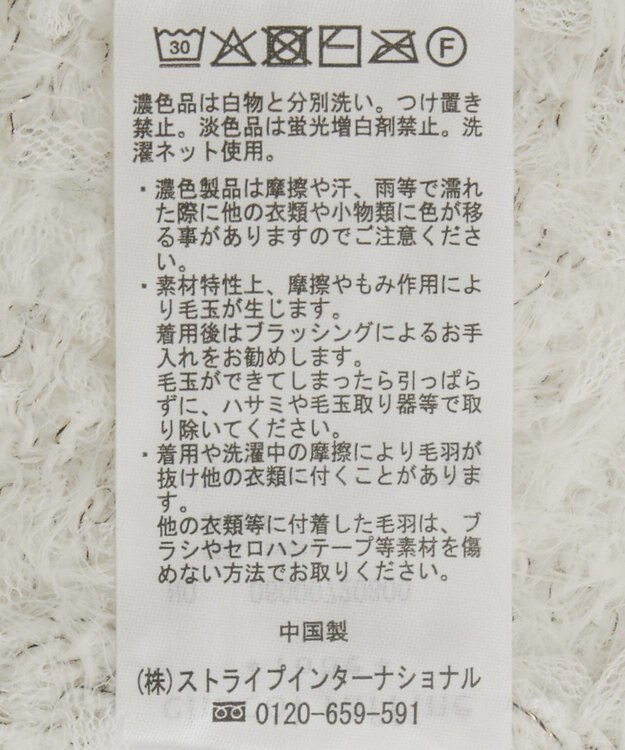 30 F
濃色品は白物と分別洗い。つけ置き
禁止。淡色品は蛍光増白剤禁止。洗
濯ネット使用。
・濃色製品は摩擦や汗、雨等で濡れ
た際に他の衣類や小物類に色が移
る事がありますのでご注意くださ
い。
・素材特性上、摩擦やもみ作用によ
り毛玉が生じます。
着用後はブラッシングによるお手
入れをお勧めします。
毛玉ができてしまったら引っぱら
ずに、ハサミや毛玉取り器等で取
り除いてください。
・着用や洗濯中の摩擦により毛羽が
抜け他の衣類に付くことがありま
す。
他の衣類等に付着した毛羽は、ブ
ラシやセロハンテープ等素材を傷
めない方法でお取りください。
中国製
(株)ストライプインターナショナル
0120-659-591